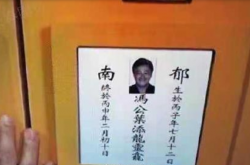 郁南
生於丙子年七月十二日
馮公葉添龍靈
終於丙申年二月初十日